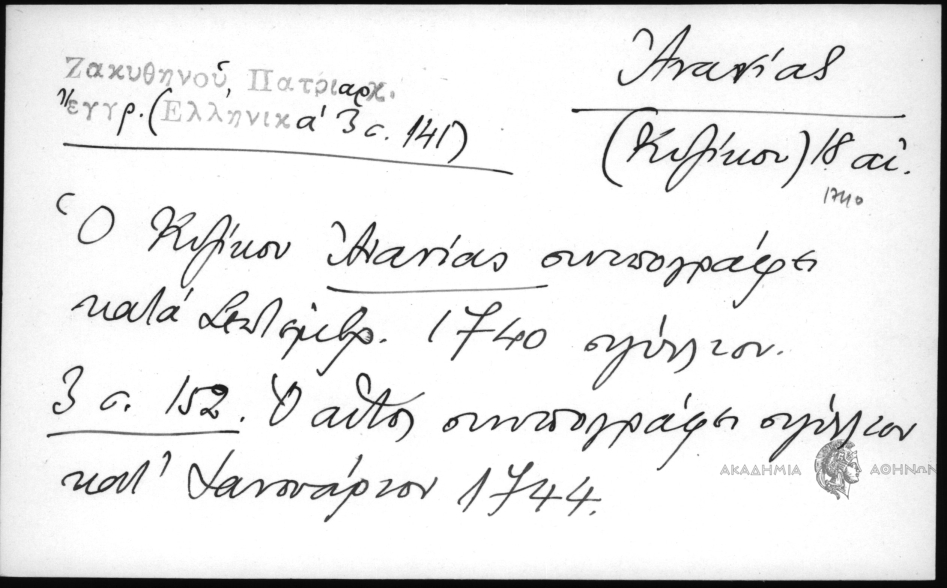 Ζακυθηνοῦ, Πατριαρχ.
ἔγγρ. (Ἑλληνικά 3 σ. 141)
Ἀνανίας
(Κυζίκου) 18 αἰ.
1740
Ὁ Κυζίκου Ἀνανίας συνυπογράφει
κατά Σεπτέμβρ. 1740 σιγίλλιον.
3 σ. 152. Ὁ αὐτός συνυπογράφει σιγίλλιον
κατ' Ἰανουάριον 1744.
ΑΚΑΔΗΜΙΑ ΑΘΗΝΩΝ